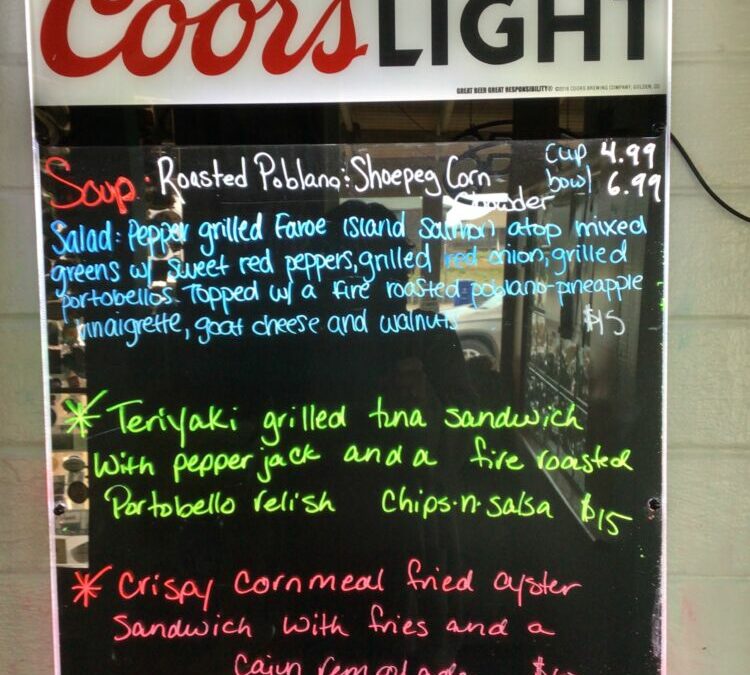 Coors LIGHT
GREAT BEER GREAT RESPONSIBILITY® ©2018 COORS BREWING COMPANY, GOLDEN, CO
Soup: Roasted Poblano: Shoepeg Corn Chowder
cup 4.99
bowl 6.99
Salad: Pepper grilled Faroe island Salmon atop mixed
greens w/ sweet red peppers, grilled red onion, grilled
portobellos. Topped w/ a fire roasted poblano-pineapple
vinaigrette, goat cheese and walnuts $15
* Teriyaki grilled tuna sandwich
with pepper jack and a fire roasted
Portobello relish Chips-n-salsa $15
* Crispy Cornmeal fried oyster
Sandwich with fries and a
Cajun remolade